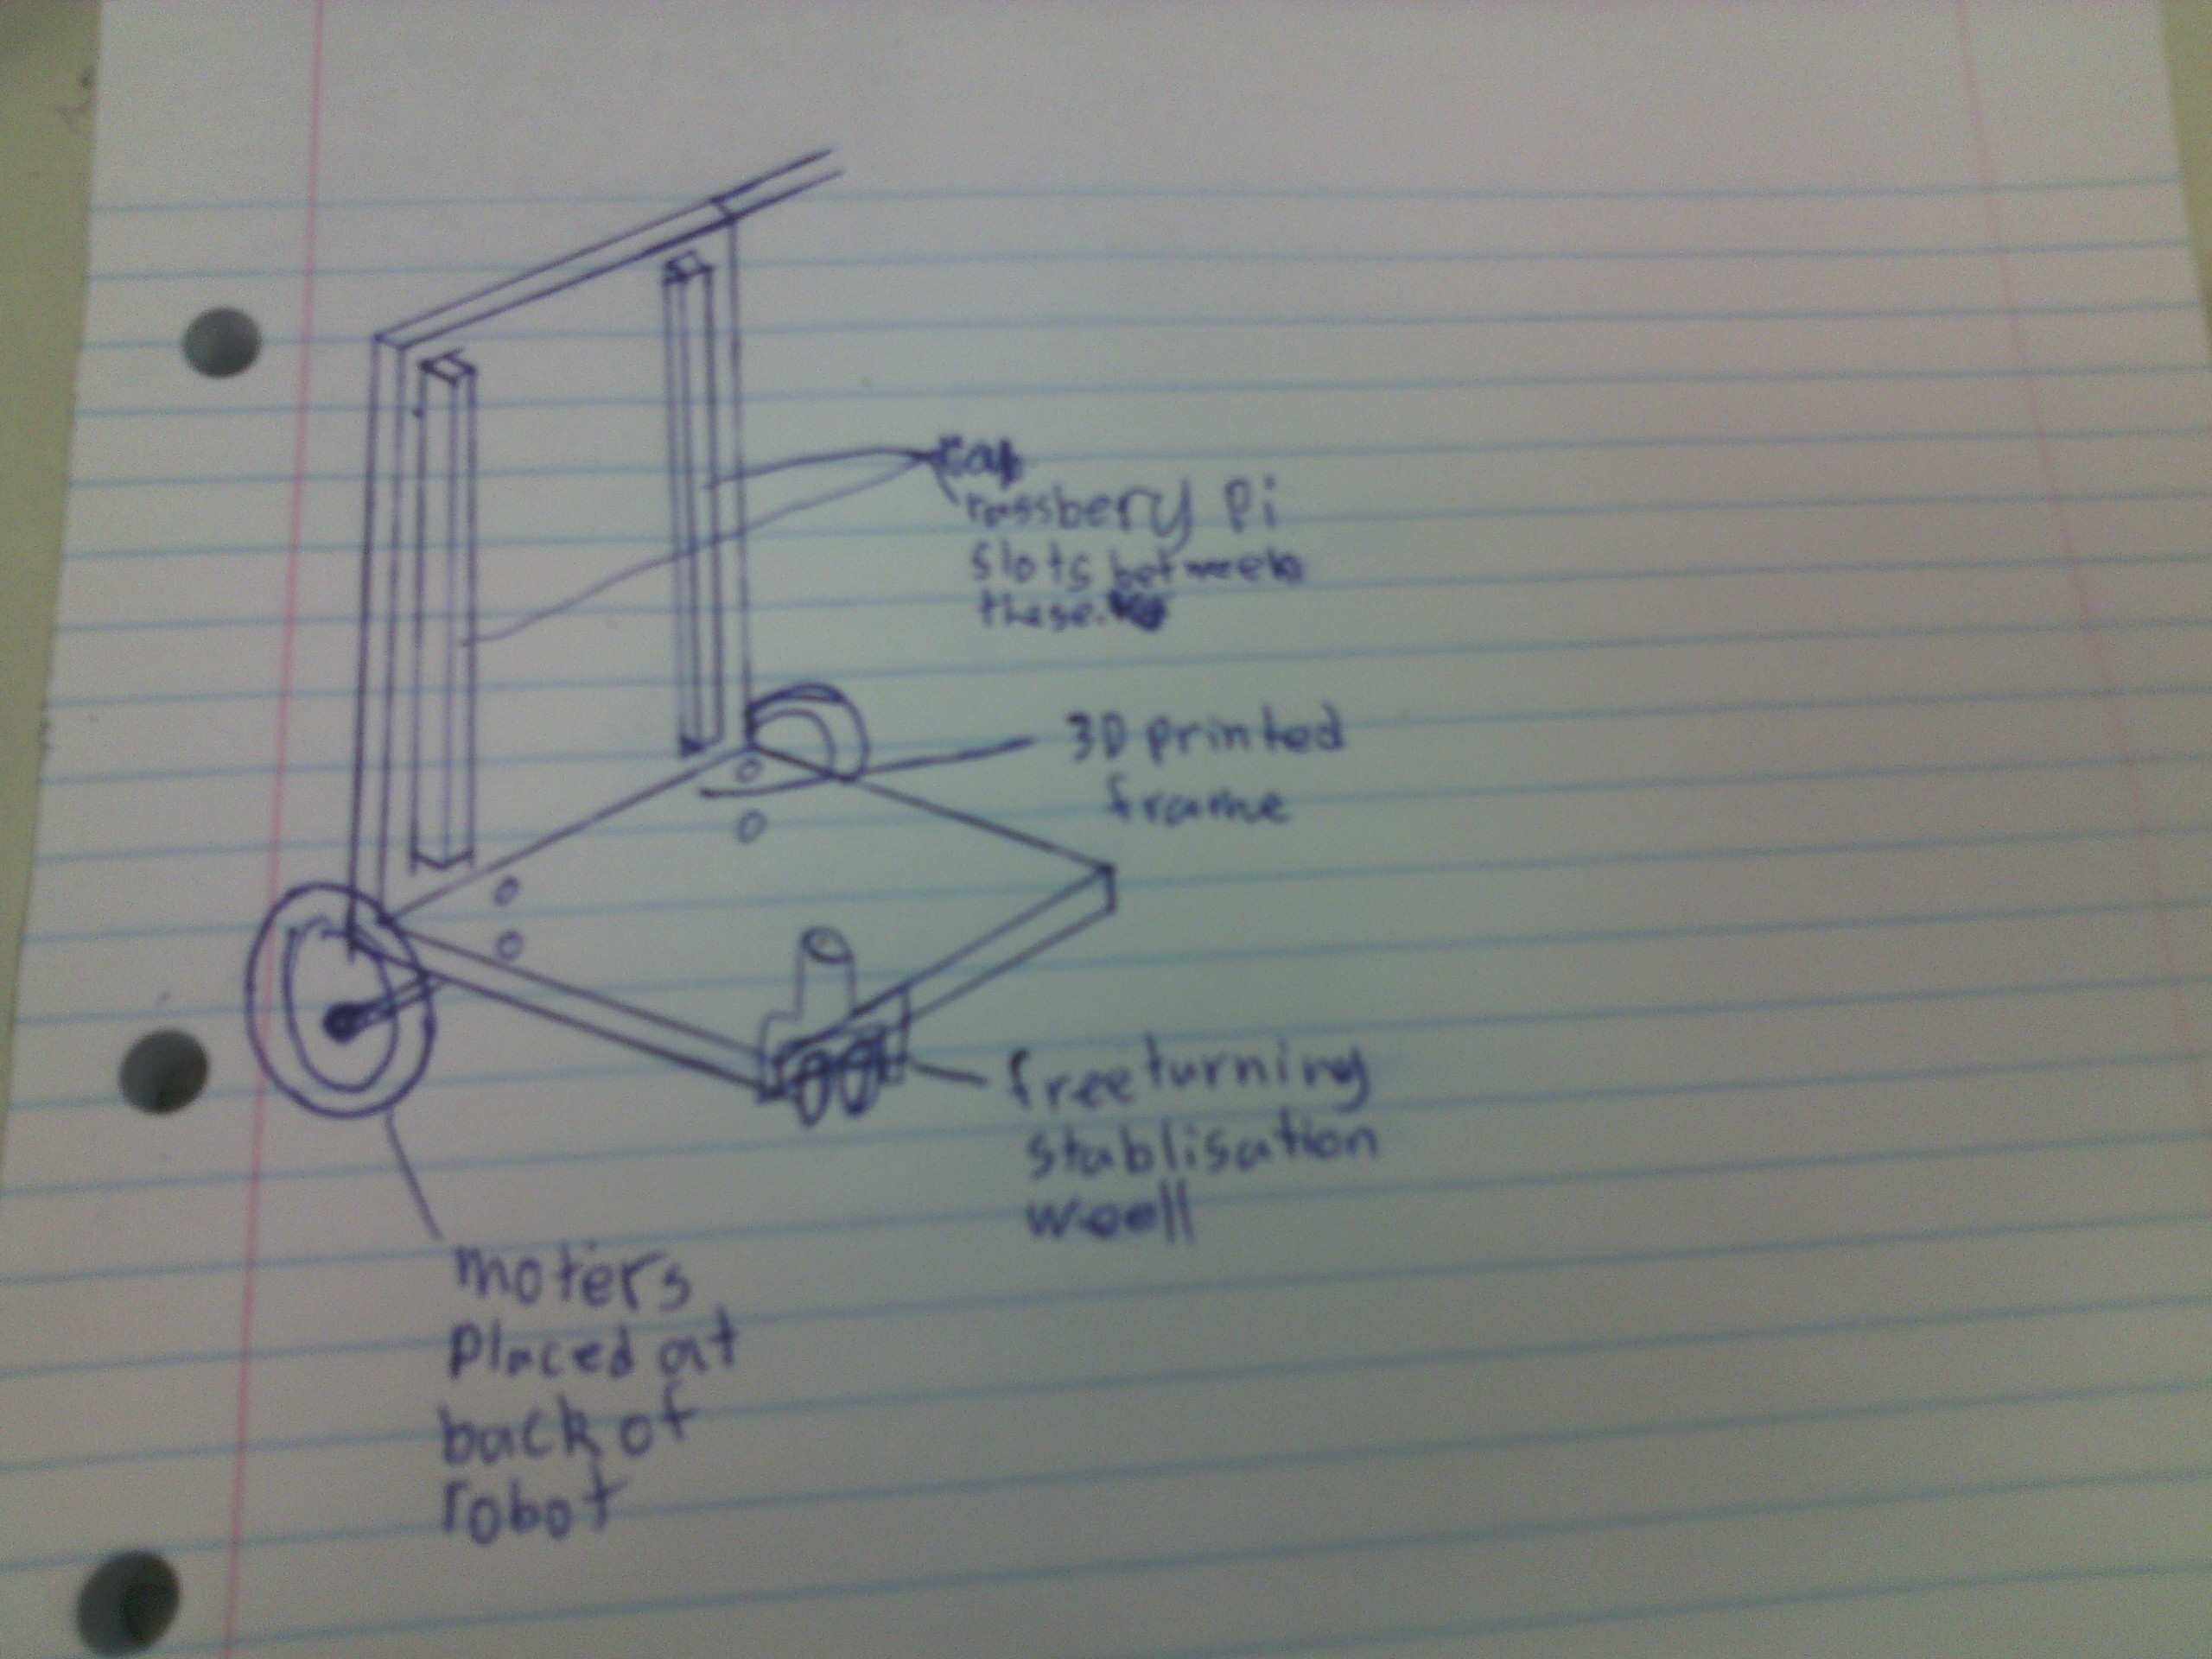 rassbery Pi
slots between
these.
3D printed
frame
freeturning
stablisation
weell
moters
placed at
back of
robot